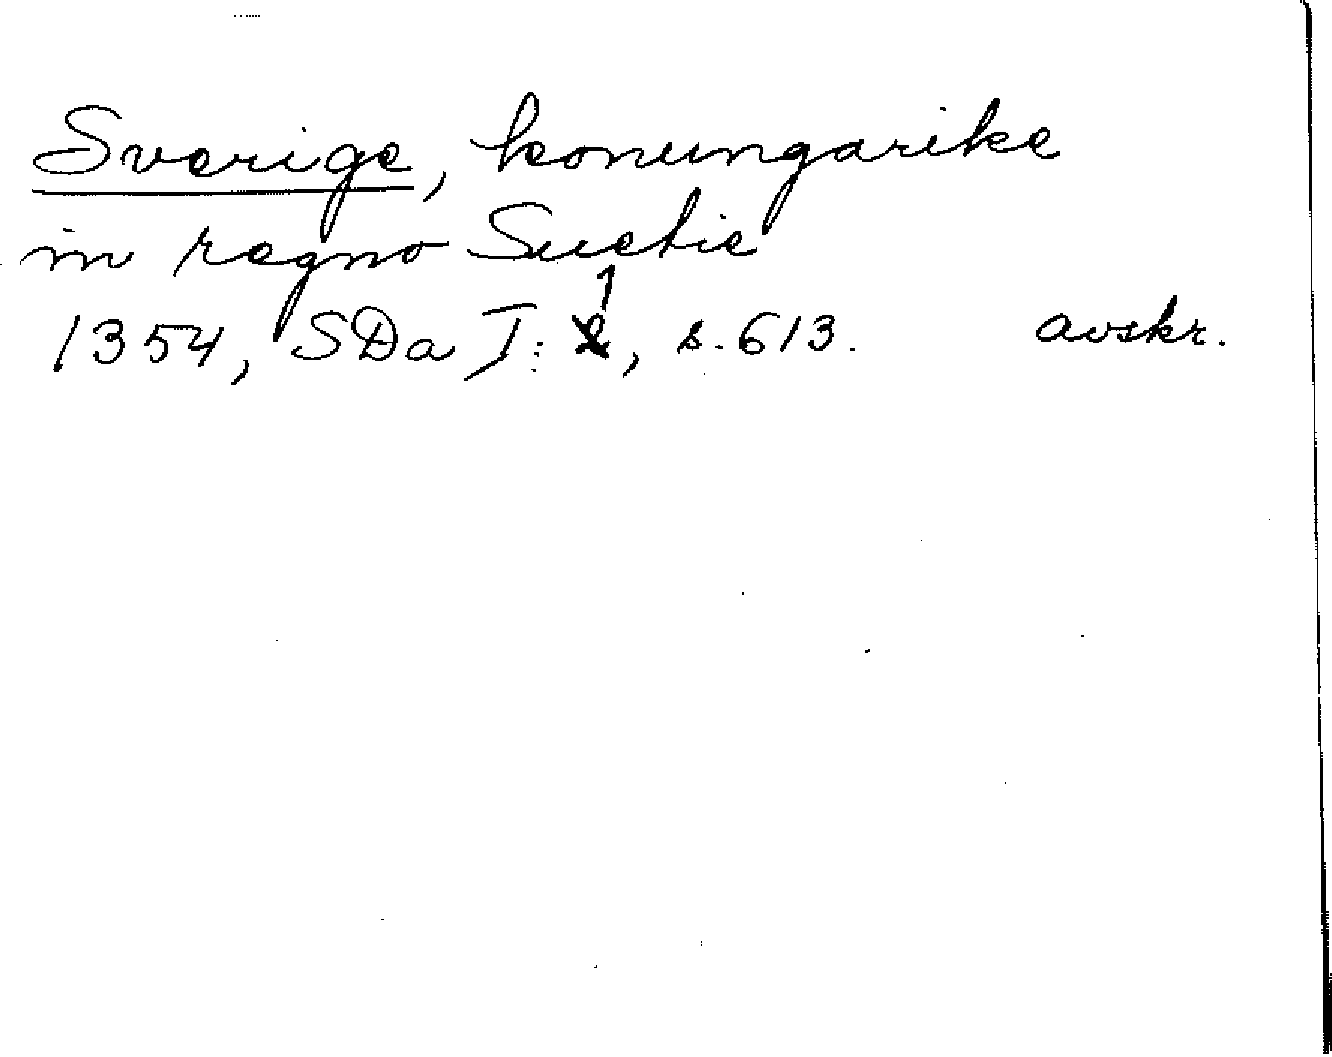 Sverige, konungarike
in regno Suetie
1354, SDa I: 1, s. 613. avskr.